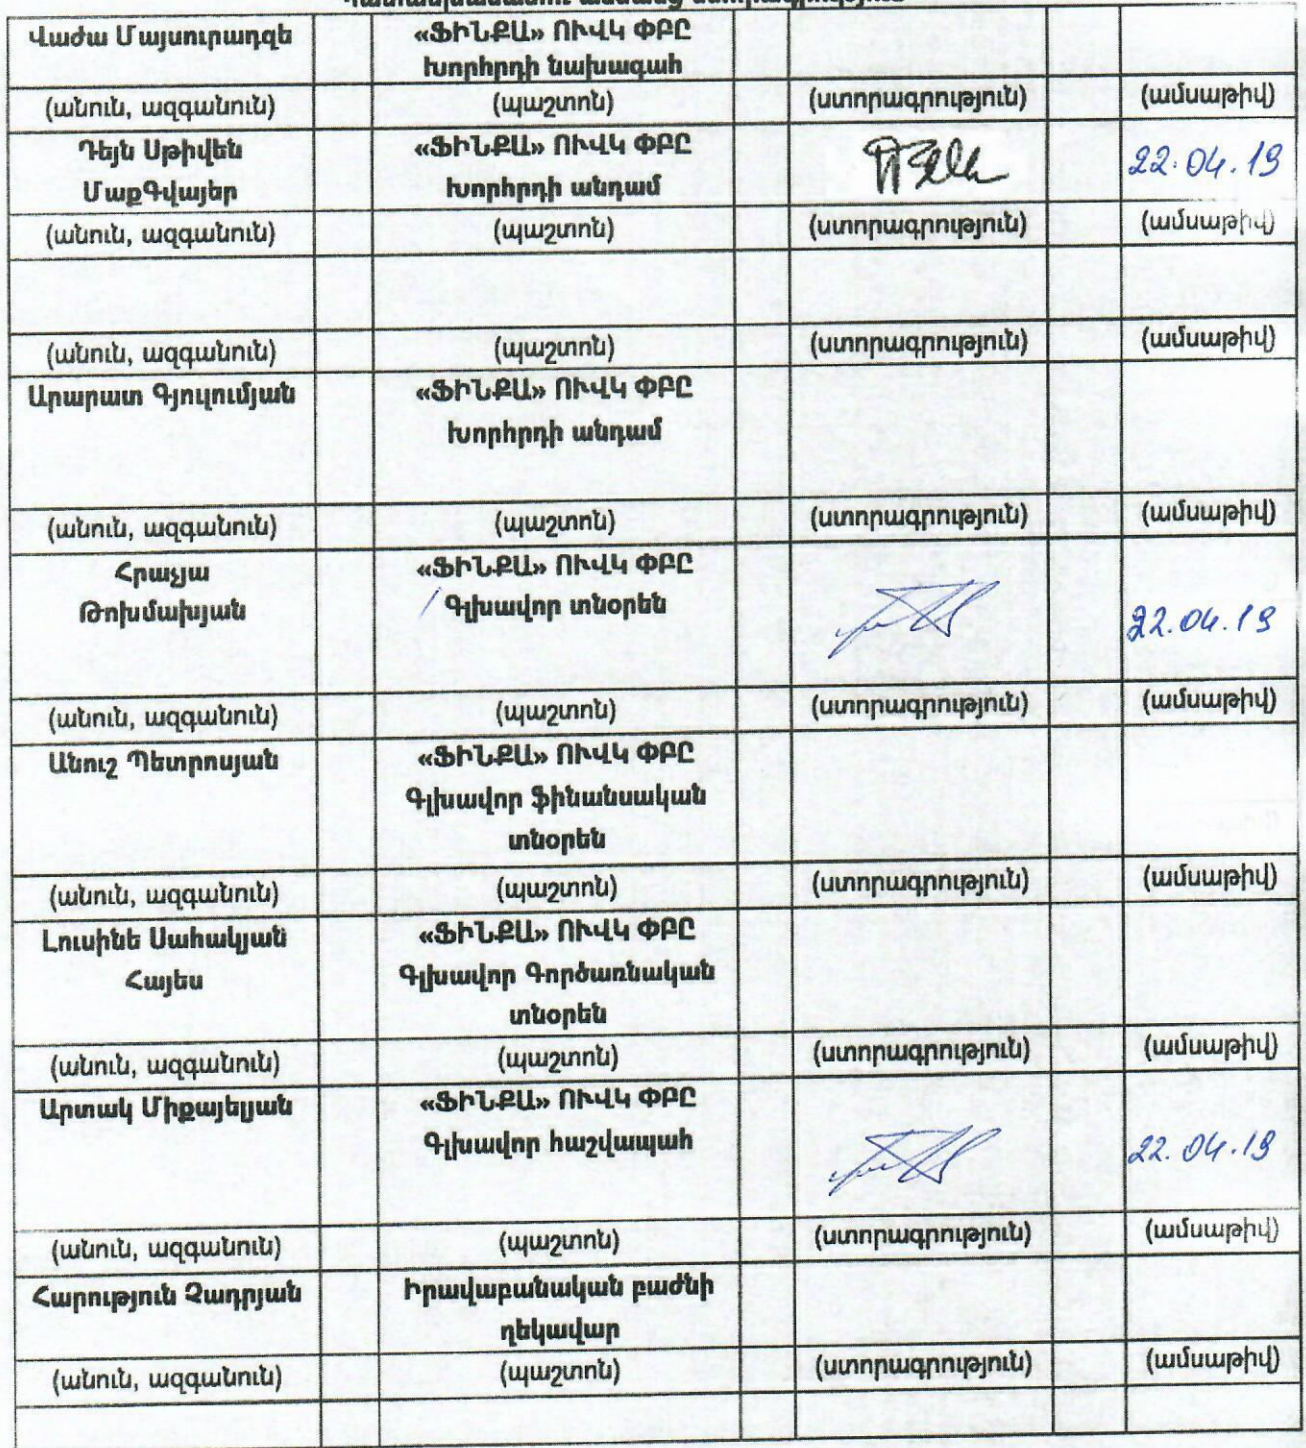 Վաժա Մայսուրաղզե «ՖԻՆՔԱ» ՈՒՎԿ ՓԲԸ
Խորհրդի նախագահ
(անուն, ազգանուն) (պաշտոն) (ստորագրություն) (ամսաթիվ)
Դեյն Սթիվեն «ՖԻՆՔԱ» ՈՒՎԿ ՓԲԸ 22.04.19
ՄաքԳվայեր Խորհրդի անդամ
(անուն, ազգանուն) (պաշտոն) (ստորագրություն) (ամսաթիվ)
(անուն, ազգանուն) (պաշտոն) (ստորագրություն) (ամսաթիվ)
Արարատ Գյուլումյան «ՖԻՆՔԱ» ՈՒՎԿ ՓԲԸ
Խորհրդի անդամ
(անուն, ազգանուն) (պաշտոն) (ստորագրություն) (ամսաթիվ)
Հրաչյա «ՖԻՆՔԱ» ՈՒՎԿ ՓԲԸ
Թոխմախյան Գլխավոր տնօրեն 22.04.19
(անուն, ազգանուն) (պաշտոն) (ստորագրություն) (ամսաթիվ)
Անուշ Պետրոսյան «ՖԻՆՔԱ» ՈՒՎԿ ՓԲԸ
Գլխավոր ֆինանսական
տնօրեն
(անուն, ազգանուն) (պաշտոն) (ստորագրություն) (ամսաթիվ)
Լուսինե Սահակյան «ՖԻՆՔԱ» ՈՒՎԿ ՓԲԸ
Հայես Գլխավոր Գործառնական
տնօրեն
(անուն, ազգանուն) (պաշտոն) (ստորագրություն) (ամսաթիվ)
Արտակ Միքայելյան «ՖԻՆՔԱ» ՈՒՎԿ ՓԲԸ
Գլխավոր հաշվապահ 22.04.19
(անուն, ազգանուն) (պաշտոն) (ստորագրություն) (ամսաթիվ)
Հարություն Չադրյան Իրավաբանական բաժնի
ղեկավար
(անուն, ազգանուն) (պաշտոն) (ստորագրություն) (ամսաթիվ)